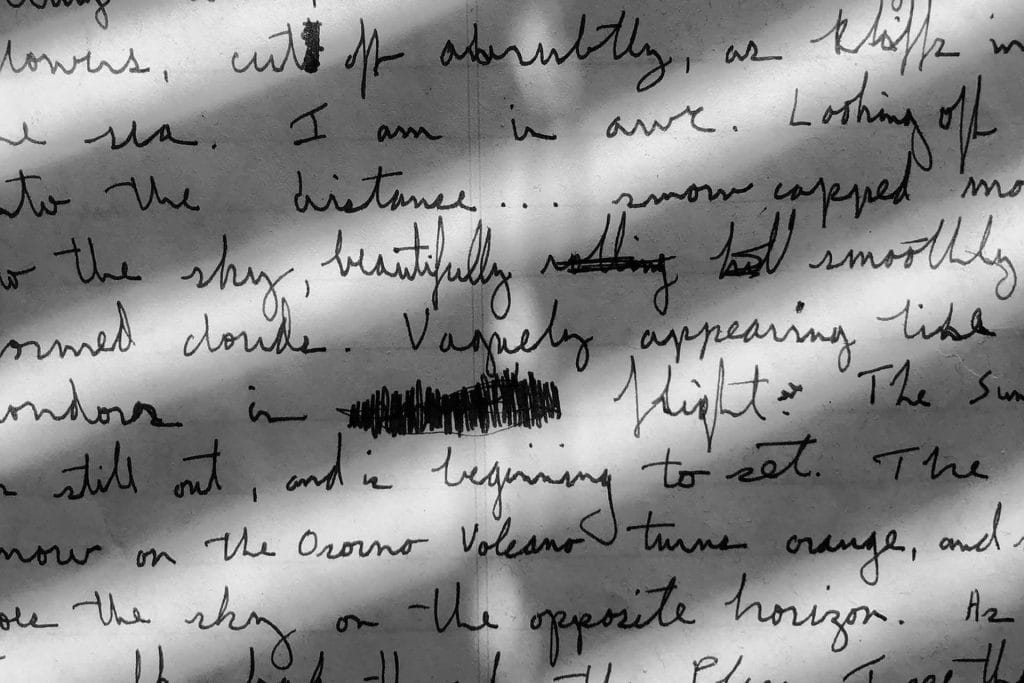 lowers, cut off abruptly, as kliffs in
he sea. I am in awe. Looking off
nto the distance... snow capped mo
w the sky, beautifully smoothly
ormed clouds. Vaguely appearing like
ondors in flight. The Sun
s still out, and is beginning to set. The
now on the Osorno Volcano turns orange, and
oes the sky on the opposite horizon. As
the